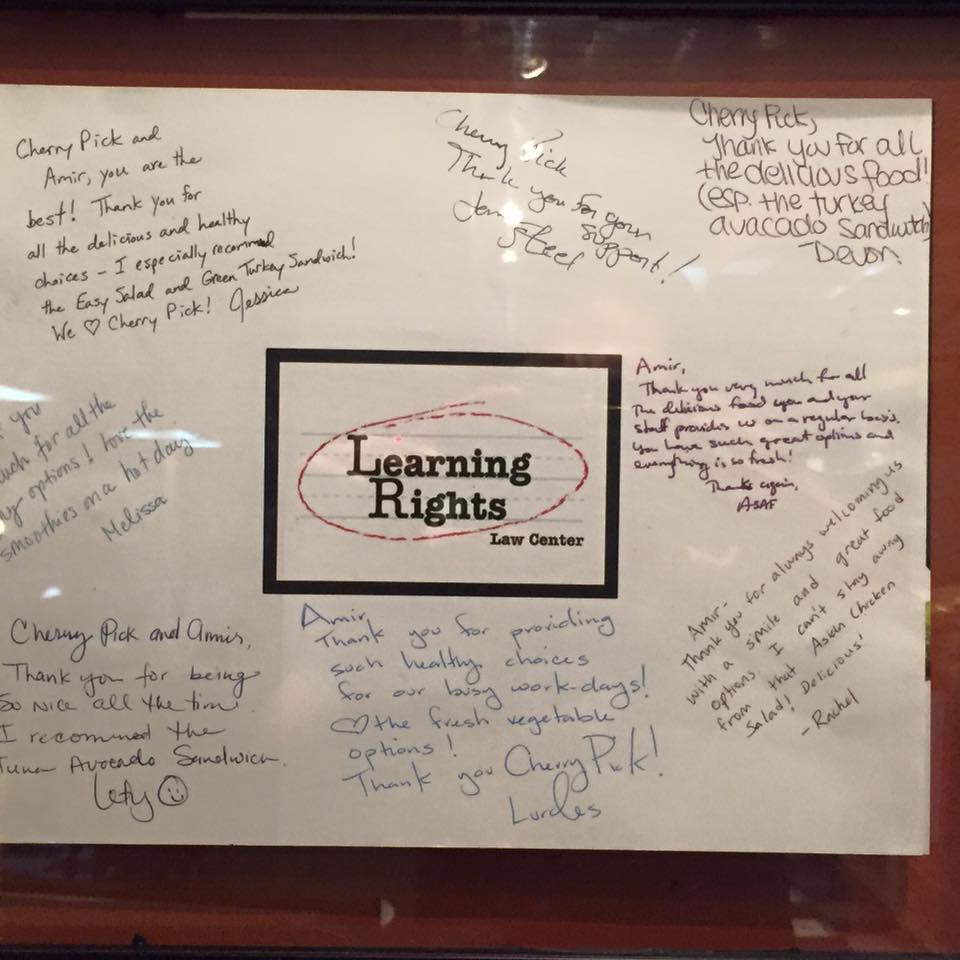 Cherry Pick and
Amir, you are the
best! Thank you for
all the delicious and healthy
choices - I especially recommend
the Easy Salad and Green Turkey Sandwich!
We ♡ Cherry Pick! Jessica
Cherry Pick
Thank you for your
support!
Steel
Cherry Pick,
Thank you for all
the delicious food!
(esp. the turkey
avacado sandwitch)
Devon
you
for all the
options! love the
smoothies on a hot day
Melissa
Learning
Rights
Law Center
Amir,
Thank you very much for all
the delicious food you and your
staff provides us on a regular basis.
You have such great options and
everything is so fresh!
Thanks again,
ASAF
Amir-
Thank you for always welcoming us
with a smile and great food
options. I can't stay away
from that Asian Chicken
Salad! Delicious!
-Rachel
Cherry Pick and Amir,
Thank you for being
So nice all the time.
I recommend the
Tuna Avocado Sandwich.
Lety ☺
Amir,
Thank you for providing
such healthy choices
for our busy work-days!
♡ the fresh vegetable
options!
Thank you Cherry Pick!
Lurdes